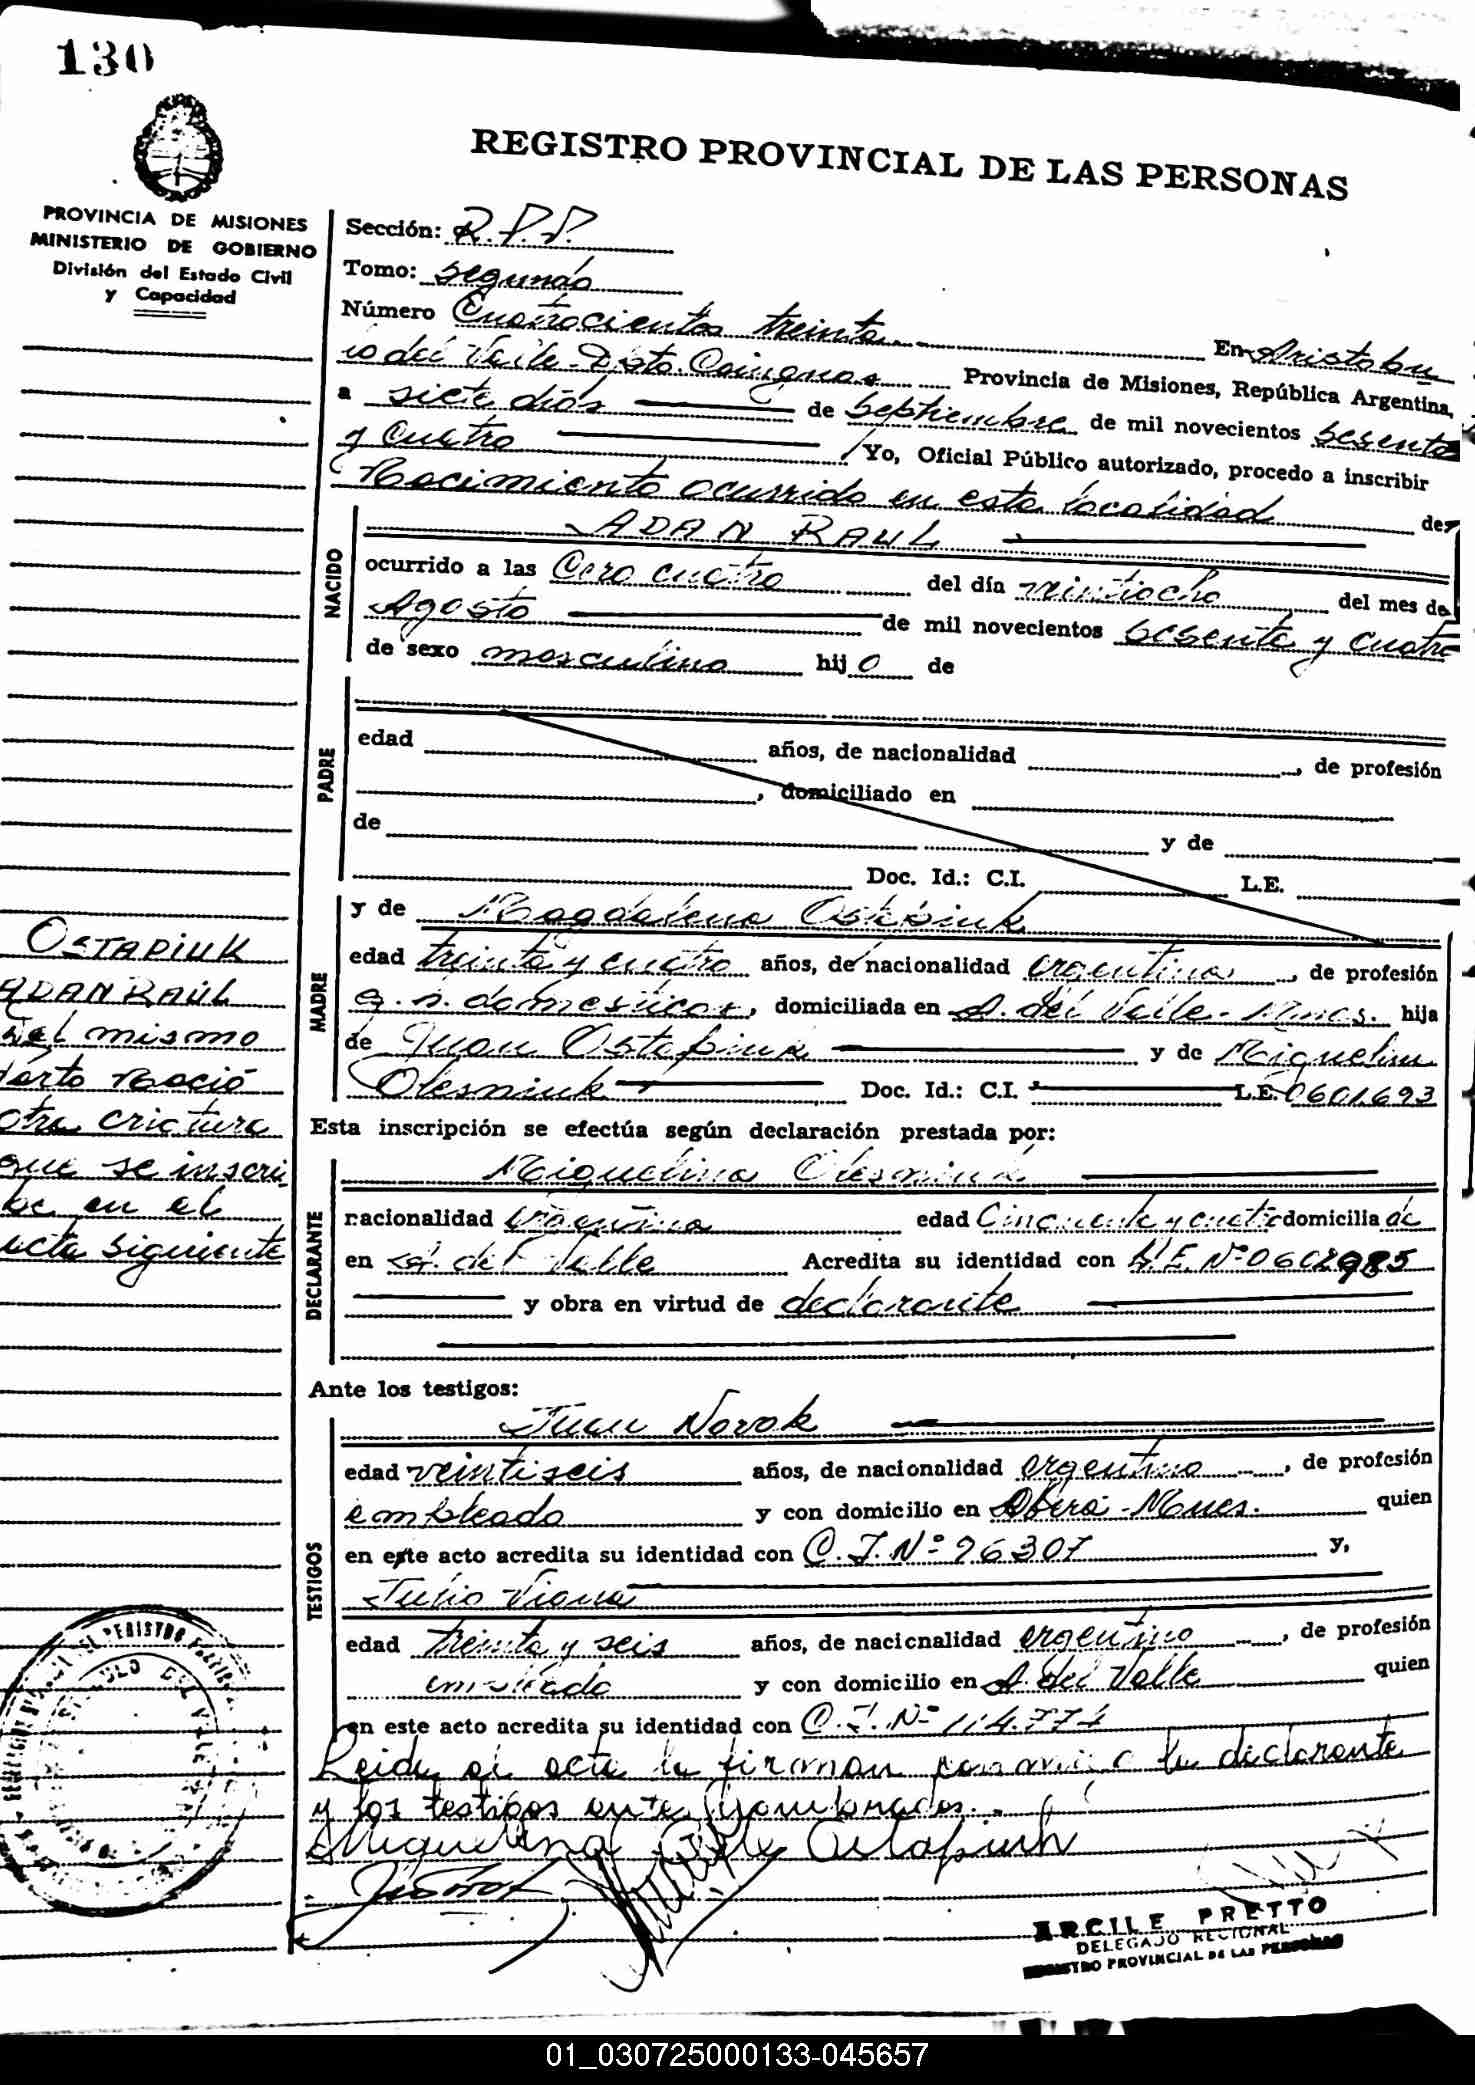 130
REGISTRO PROVINCIAL DE LAS PERSONAS
PROVINCIA DE MISIONES
MINISTERIO DE GOBIERNO
División del Estado Civil
y Capacidad
Sección: R.P.P.
Tomo: segundo
Número Cuatrocientos treinta En Aristobu
lo del Valle-Dpto. Cainguas Provincia de Misiones, República Argentina,
a siete días de septiembre de mil novecientos sesenta
y cuatro Yo, Oficial Público autorizado, procedo a inscribir
Nacimiento ocurrido en esta localidad de
NACIDO
ADAN RAUL
ocurrido a las Cero cuatro del día veintiocho del mes de
Agosto de mil novecientos sesenta y cuatro
de sexo masculino hijo de
PADRE
edad años, de nacionalidad , de profesión
, domiciliado en
de y de
Doc. Id.: C.I. L.E.
MADRE
y de Magdalena Ostapiuk
edad treinta y cuatro años, de nacionalidad argentina , de profesión
q. s. domesticos, domiciliada en A. del Valle - Mnes. hija
de Juan Ostapiuk y de Miguelina
Olesniuk Doc. Id.: C.I. L.E. 0601693
OSTAPIUK
ADAN RAÚL
Del mismo
parto nació
otra criatura
que se inscri
be en el
acta siguiente
Esta inscripción se efectúa según declaración prestada por:
DECLARANTE
Miguelina Olesniuk
nacionalidad argentina edad Cincuenta y cuatro domiciliada
en A. del Valle Acredita su identidad con L.E. Nº 0602985
y obra en virtud de declarante
Ante los testigos:
TESTIGOS
Juan Novak
edad veintiseis años, de nacionalidad argentino , de profesión
empleado y con domicilio en Oberá - Mnes. quien
en este acto acredita su identidad con C.I. Nº 96307 y,
Julio Viana
edad treinta y seis años, de nacionalidad argentino , de profesión
empleado y con domicilio en A. del Valle quien
en este acto acredita su identidad con C.I. Nº 114.774
Leida el acta la firman la declarante
y los testigos ante nombrados.
Miguelina de Ostapiuk
ARCILE PRETTO
DELEGADO REGIONAL
REGISTRO PROVINCIAL DE LAS PERSONAS
01_030725000133-045657